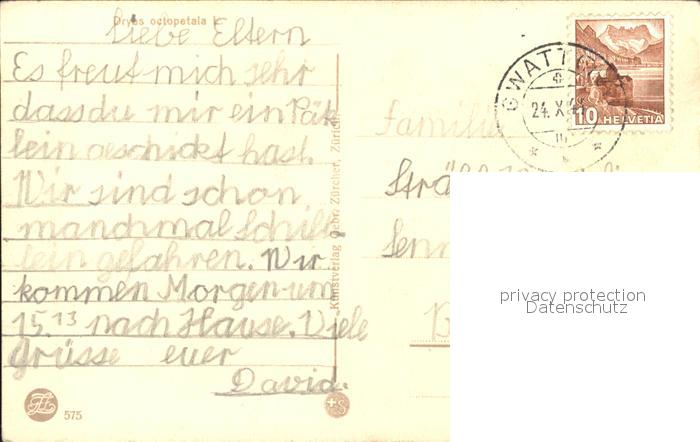 Dryas octopetala L.
liebe Eltern
Es freut mich sehr
dass du mir ein Päk
lein geschickt hast.
Wir sind schon
manchmal Schiff
lein gefahren. Wir
kommen Morgen um
15.13 nach Hause. Viele
Grüsse euer
David.
575
Kunstverlag Gebr. Zürcher, Zürich
+S
GWATT
24. X
10 HELVETIA
Familie
privacy protection
Datenschutz